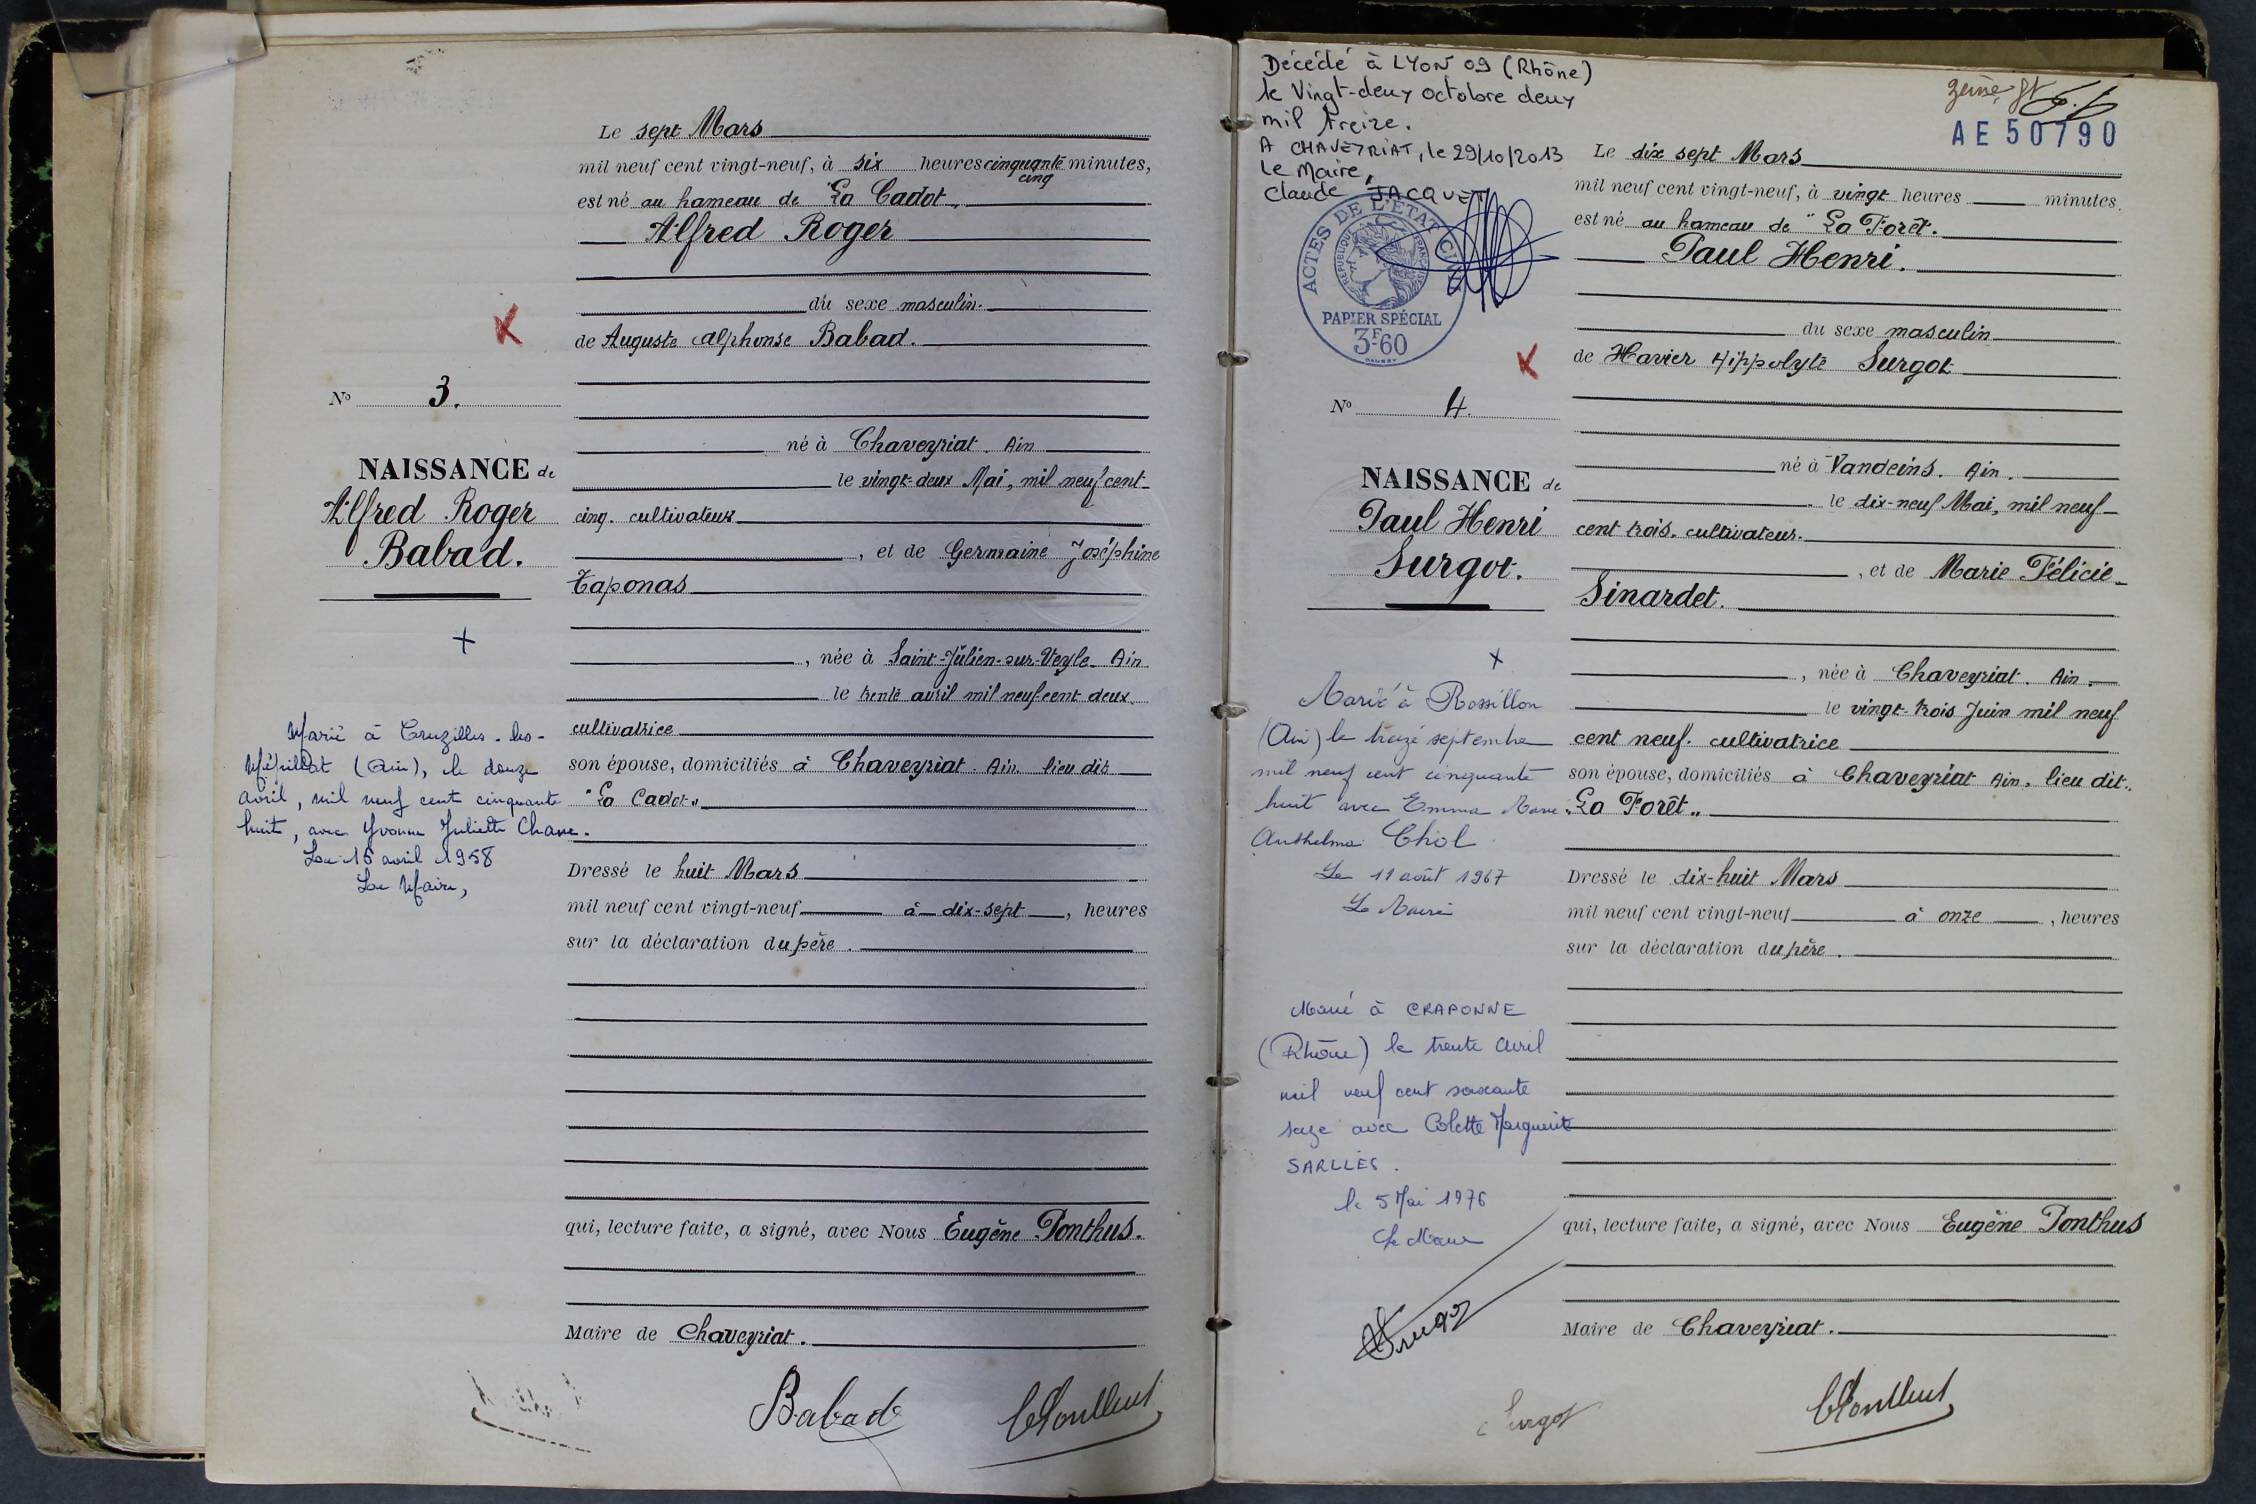 Le sept Mars
mil neuf cent vingt-neuf, à six heures cinquante minutes,
cinq
est né au hameau de "La Cadot"
Alfred Roger
du sexe masculin.
de Auguste Alphonse Babad.
né à Chaveyriat. Ain
le vingt-deux Mai, mil neuf cent
cinq. cultivateur
, et de Germaine Joséphine
Taponas
, née à Saint-Julien-sur-Veyle. Ain
le trente avril mil neuf cent deux
cultivatrice
son épouse, domiciliés à Chaveyriat. Ain. lieu dit
"La Cadot"
Dressé le huit Mars
mil neuf cent vingt-neuf à dix-sept, heures
sur la déclaration du père.
qui, lecture faite, a signé, avec Nous Eugène Ponthus.
Maire de Chaveyriat.
Babad
N° 3.
NAISSANCE de
Alfred Roger
Babad.
Marié à Cruzilles-les-
Mépillat (Ain), le douze
avril, mil neuf cent cinquante
huit, avec Yvonne Juliette
Le 15 avril 1958
Le Maire,
Décédé à LYON 09 (Rhône)
le Vingt-deux octobre deux
mil treize.
A CHAVEYRIAT, le 29/10/2013
Le Maire,
Claude JACQUET
ACTES DE L'ETAT CIVIL
REPUBLIQUE FRANÇAISE
PAPIER SPÉCIAL
3F60
N° 4.
NAISSANCE de
Paul Henri
Surgot.
Marié à Rossillon
(Ain) le treize septembre
mil neuf cent cinquante
huit avec Emma Marie
Anthelma Chol
Le 11 août 1967
Le Maire
Marié à CRAPONNE
(Rhône) le trente Avril
mil neuf cent soixante
seize avec Colette Marguerite
SARLLES.
le 5 Mai 1976
Le Maire
Surgot
AE 50790
Le dix sept Mars
mil neuf cent vingt-neuf, à vingt heures minutes,
est né au hameau de "La Forêt.
Paul Henri.
du sexe masculin
de Xavier Hippolyte Surgot
né à Vandeins. Ain.
le dix-neuf Mai, mil neuf
cent trois. cultivateur.
, et de Marie Félicie
Sinardet.
, née à Chaveyriat. Ain.
le vingt-trois Juin mil neuf
cent neuf. cultivatrice
son épouse, domiciliés à Chaveyriat Ain. lieu dit.
"La Forêt"
Dressé le dix-huit Mars
mil neuf cent vingt-neuf à onze, heures
sur la déclaration du père.
qui, lecture faite, a signé, avec Nous Eugène Ponthus
Maire de Chaveyriat.